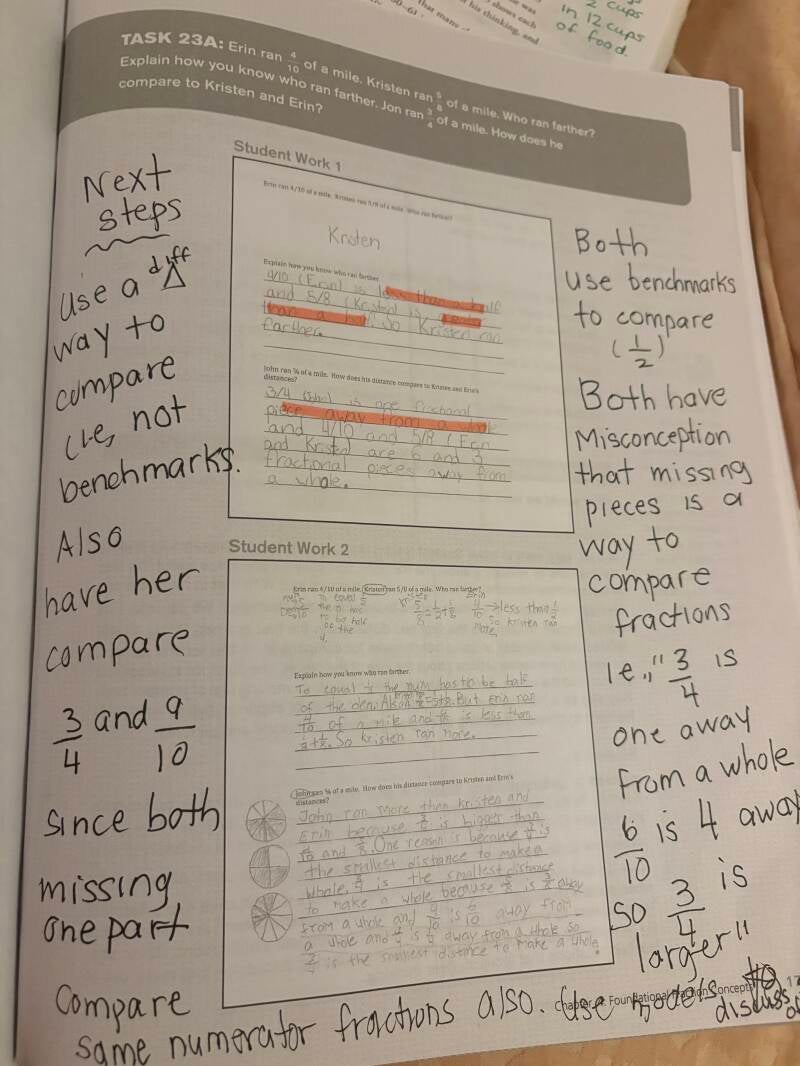 2 cups
in 12 cups
of food.
TASK 23A: Erin ran 4/10 of a mile. Kristen ran 5/8 of a mile. Who ran farther?
Explain how you know who ran farther. Jon ran 3/4 of a mile. How does he
compare to Kristen and Erin?
Next
steps
Use a diff
way to
compare
(ie, not
benchmarks.
Also
have her
compare
3/4 and 9/10
since both
missing
one part
Student Work 1
Erin ran 4/10 of a mile. Kristen ran 5/8 of a mile. Who ran farther?
Kristen
Explain how you know who ran farther.
4/10 (Erin) is less than a half
and 5/8 (Kristen) is
than a half. So Kristen ran
farther.
John ran 3/4 of a mile. How does his distance compare to Kristen and Erin's
distances?
3/4 (John) is one fractional
piece away from a whole
and 4/10 and 5/8 (Erin
and Kristen) are 6 and 3
fractional pieces away from
a whole.
Student Work 2
Erin ran 4/10 of a mile. Kristen ran 5/8 of a mile. Who ran farther?
5/8 = 1/2 + 1/8
4/10 → less than 1/2
So Kristen ran
more.
Explain how you know who ran farther.
To equal 1/2 the num has to be half
of the den. Also
But Erin ran
4/10 of a mile and 4/10 is less than
1/2 + 1/8. So Kristen ran more.
John ran 3/4 of a mile. How does his distance compare to Kristen and Erin's
distances?
John ran more than Kristen and
Erin because 3/4 is bigger than
4/10 and 5/8. One reason is because 3/4 is
the smallest distance to make a
whole. 3/4 is the smallest distance
to make a whole because 5/8 is 3/8 away
from a whole and 4/10 is 6/10 away from
a whole and 3/4 is 1/4 away from a whole so
3/4 is the smallest distance to make a whole.
Both
use benchmarks
to compare
(1/2)
Both have
Misconception
that missing
pieces is a
way to
compare
fractions
ie., "3/4 is
one away
from a whole
6/10 is 4 away
so 3/4 is
larger"
Compare
same numerator fractions also. Use models to
discuss